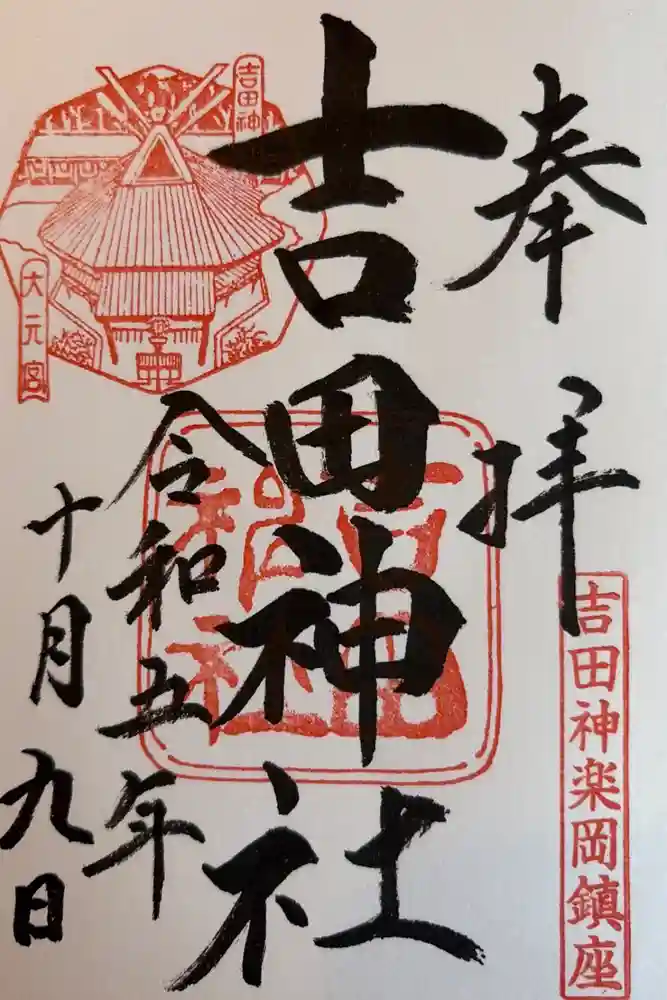 奉拝
吉田神楽岡鎮座
吉田神社
令和五年
十月九日
吉田神
大元宮